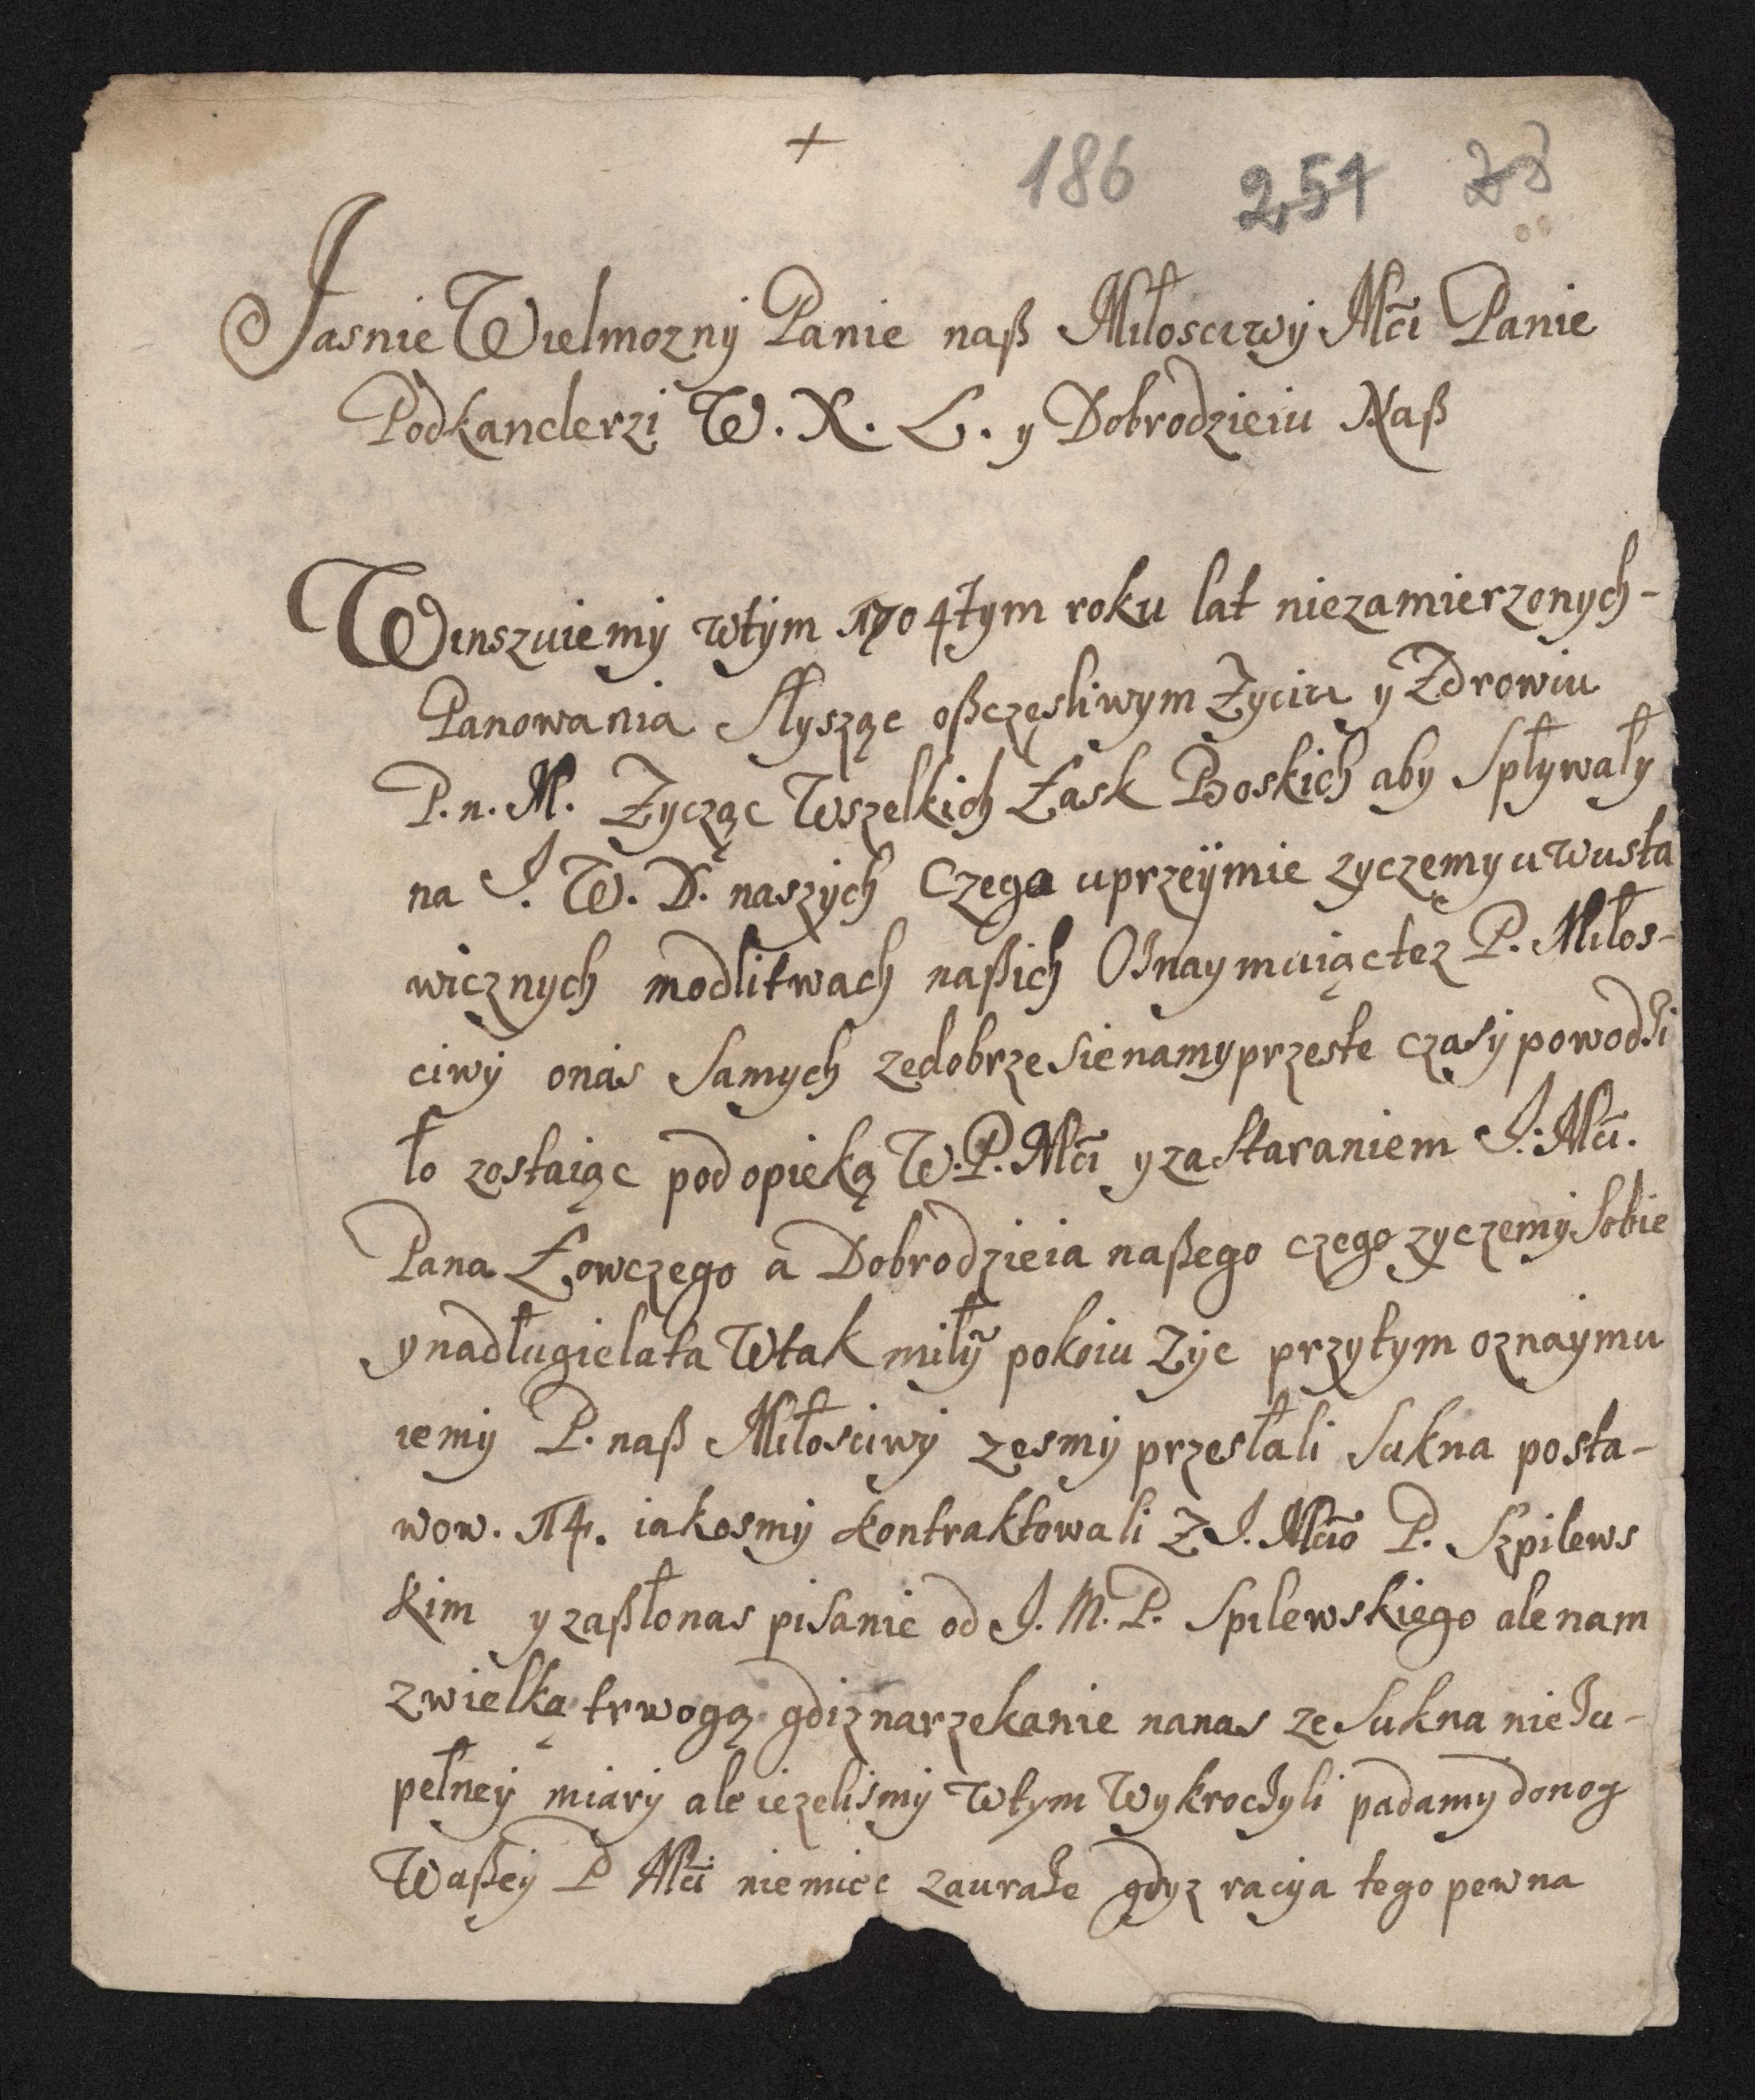 +
186 254
Jasnie Wielmozny Panie naß Miłosciwy Mći Panie
Podkanclerzi W. X. L. y Dobrodzieiu Naß
Winszuiemy wtym 1704tym roku lat niezamierzonych-
Panowania Słysząc oßczęsliwym Zyciu y Zdrowiu
P. n. M. Zycząc Wszelkich Łask Boskich aby Spływały
na J. W. D. naszych Czego uprzeÿmie zyczemy uwusta
wicznych modlitwach naßich Oznaymuiąc tez P. Miłos-
ciwy onas Samych zedobrze sie namy przeste czasy powodzi
ło zostaiąc pod opieką W. P. Mći y za Staraniem J. Mći.
Pana Łowczego a Dobrodzieia naßego czego zyczemy Sobie
y nadługie lata Wtak miły̅ pokoiu Zyc przytym oznaymu
iemy P. naß Miłosciwy zesmy przesłali Sukna posta-
wow. 14. iakosmy kontraktowali Z J. Mcio P. Szpilews
kim y zaßłonas pisanie od J. M. P. Spilewskiego ale nam
zwielką trwogą gdiz narzekanie nanas ze Sukna nie zu-
pełney miary ale iezelismy Wtym Wykroczyli padamy donog
Waßey P Mći niemiec zauraze gdyz racyia tego pewna